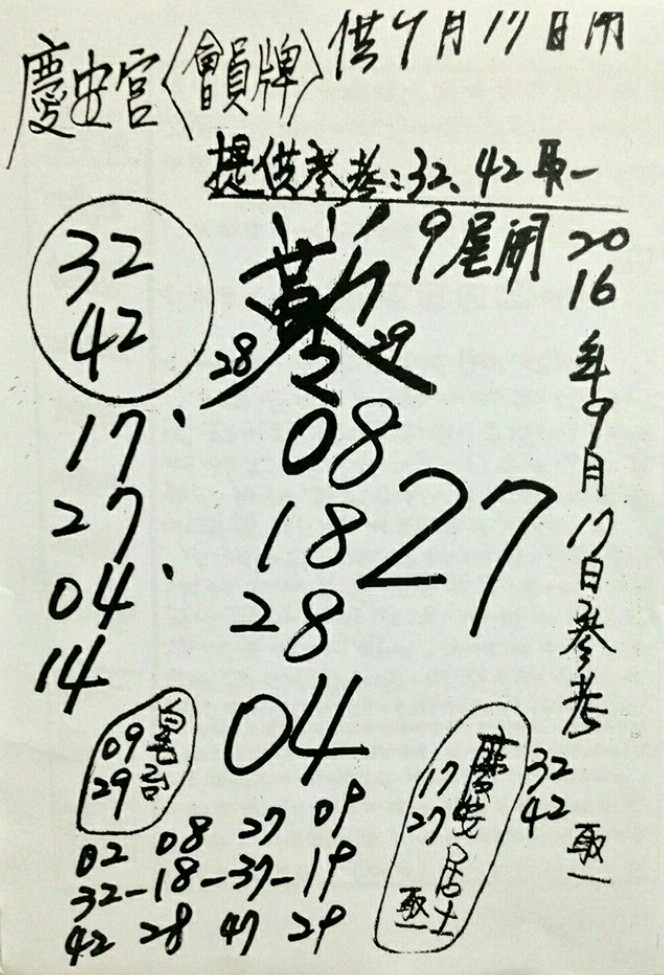 供9月17日用
慶史宮〈會員牌〉
提供參考:32、42取一
9尾開
32
42
28
29
17、
27
04、
14
08
18
28
04
27
2016年9月17日參考
09
29
17
27
居士
取一
32
42
取一
02 08 27 09
32-18-37-19
42 28 47 29